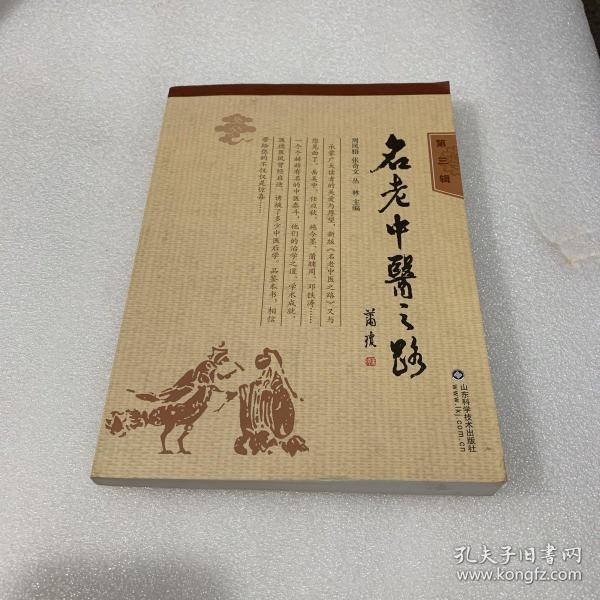 第三辑
名老中醫之路
萧琼
周凤梧 张奇文 丛林 主编
承蒙广大读者的关爱与厚望，新版《名老中医之路》又与
您见面了。岳美中、任应秋、施今墨、蒲辅周、邓铁涛……
一个个赫赫有名的中医泰斗，他们的治学之道、学术成就、
医德医风曾经启迪、请被了多少中医后学。品鉴本书，相信
带给您的不仅仅是惊喜……
山东科学技术出版社
www.lkj.com.cn
孔夫子旧书网
www.kongfz.com